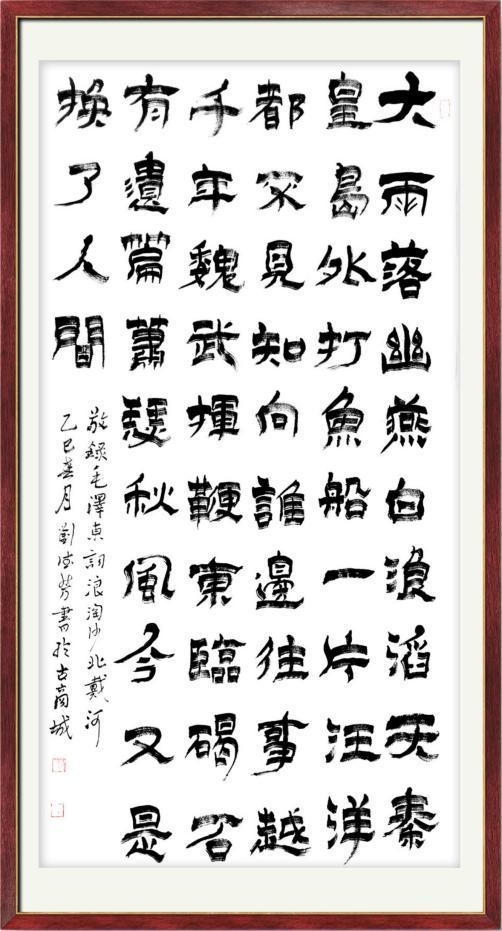 大雨落幽燕白浪滔天秦
皇島外打魚船一片汪洋
都不見知向誰邊往事越
千年魏武揮鞭東臨碣石
有遺篇蕭瑟秋風今又是
換了人間
敬錄毛澤東詞浪淘沙北戴河
乙巳春月劉芳書於古商城